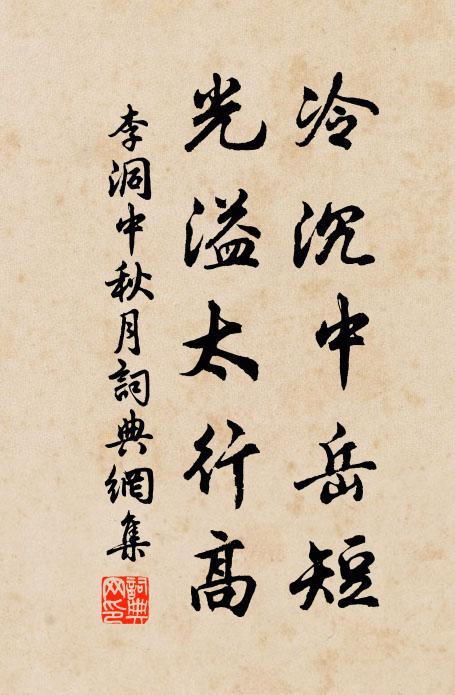 冷沉中岳短
光溢太行高
李洞中秋月詞典網集
詞典
网印